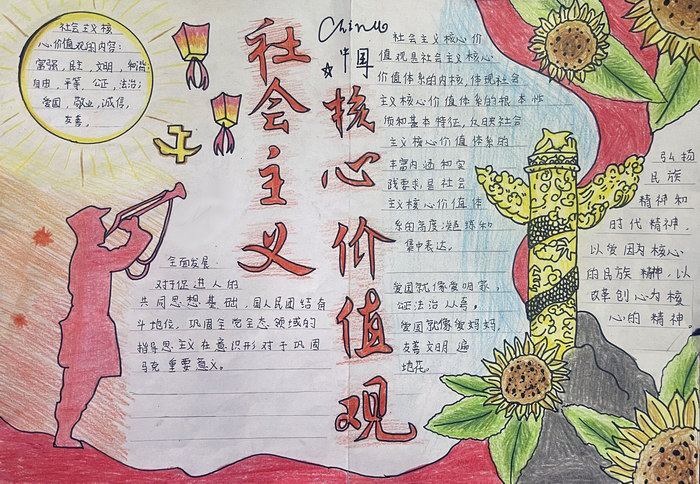 社会主义核
心价值观的内容:
富强,民主,文明,和谐
自由,平等,公正,法治;
爱国,敬业,诚信,
友善。
社会主义
China
中国
核心价值观
全面发展.
对于促进人的
共同思想基础,国人民团结奋
斗地位,巩固全党全态领域的
指导思主义在意识形对于巩固
马克重要意义。
社会主义核心价
值观是社会主义核心
价值体系的内核,体现社会
主义核心价值体系的根本性
质和基本特征,反映社会
主义核心价值体系的
丰富内涵和实
践要求是社会
主义核心价值体
系的高度凝练和
集中表达。
爱国就像爱咱家,
公正法治认真。
爱国就像爱妈妈,
友善文明遍
地花。
弘扬
民族
精神和
时代精神,
以爱国为核心
的民族精神,以
改革创心为核
心的精神